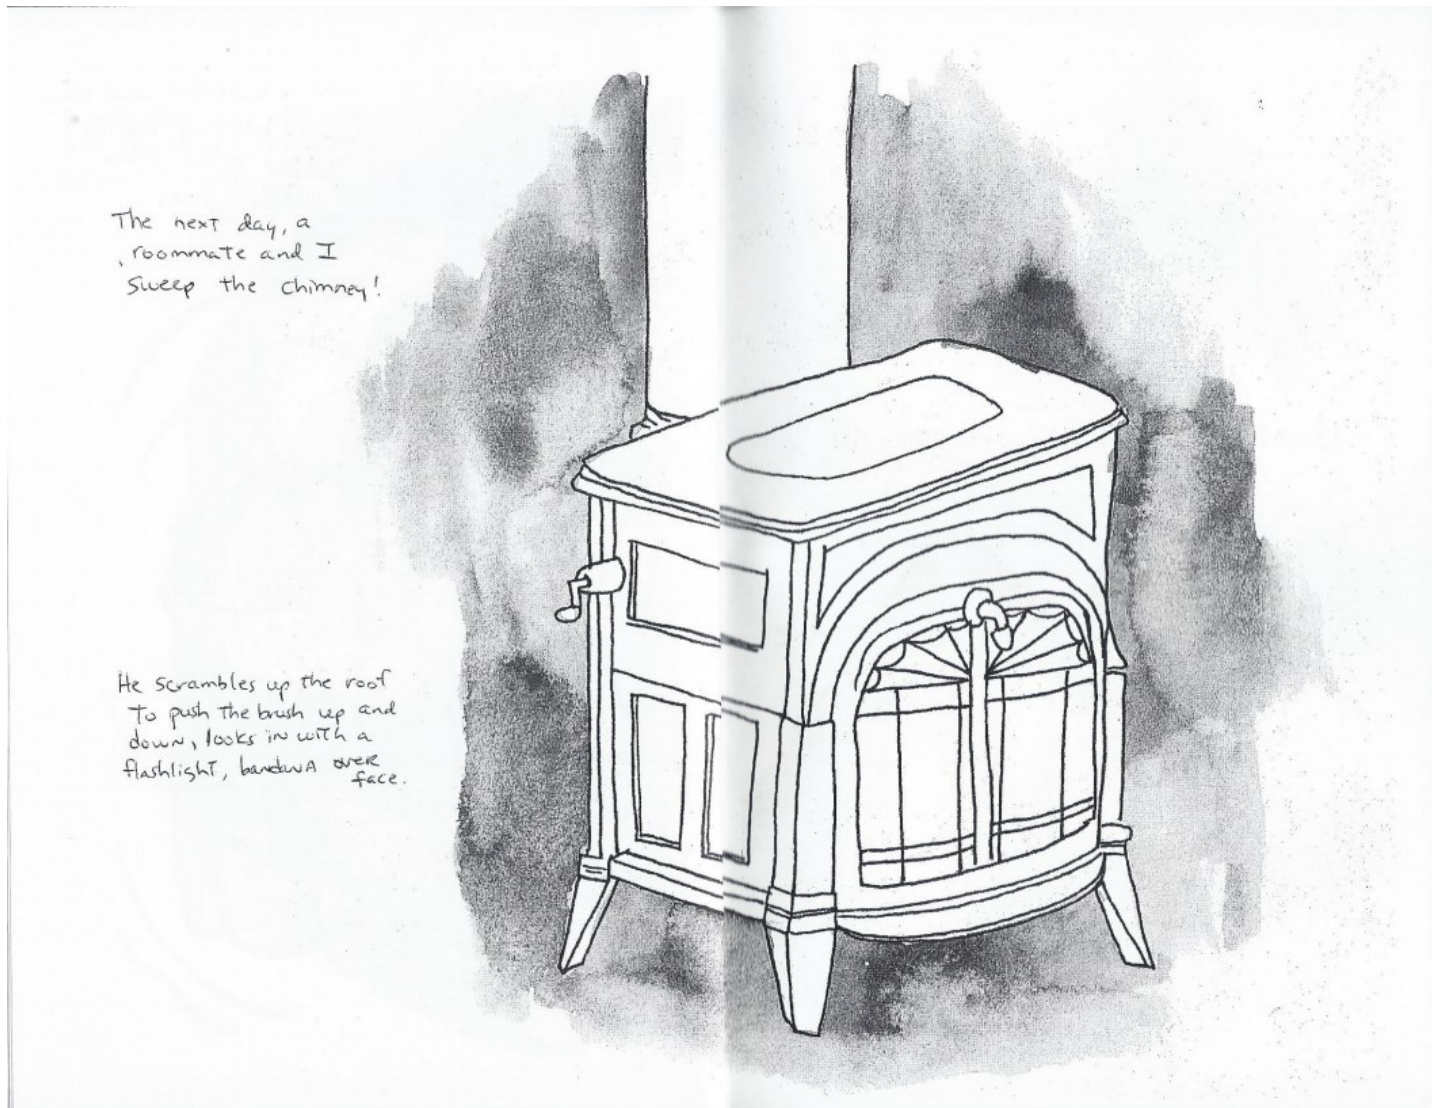 The next day, a
roommate and I
sweep the chimney!
He scrambles up the roof
to push the brush up and
down, looks in with a
flashlight, bandana over
face.